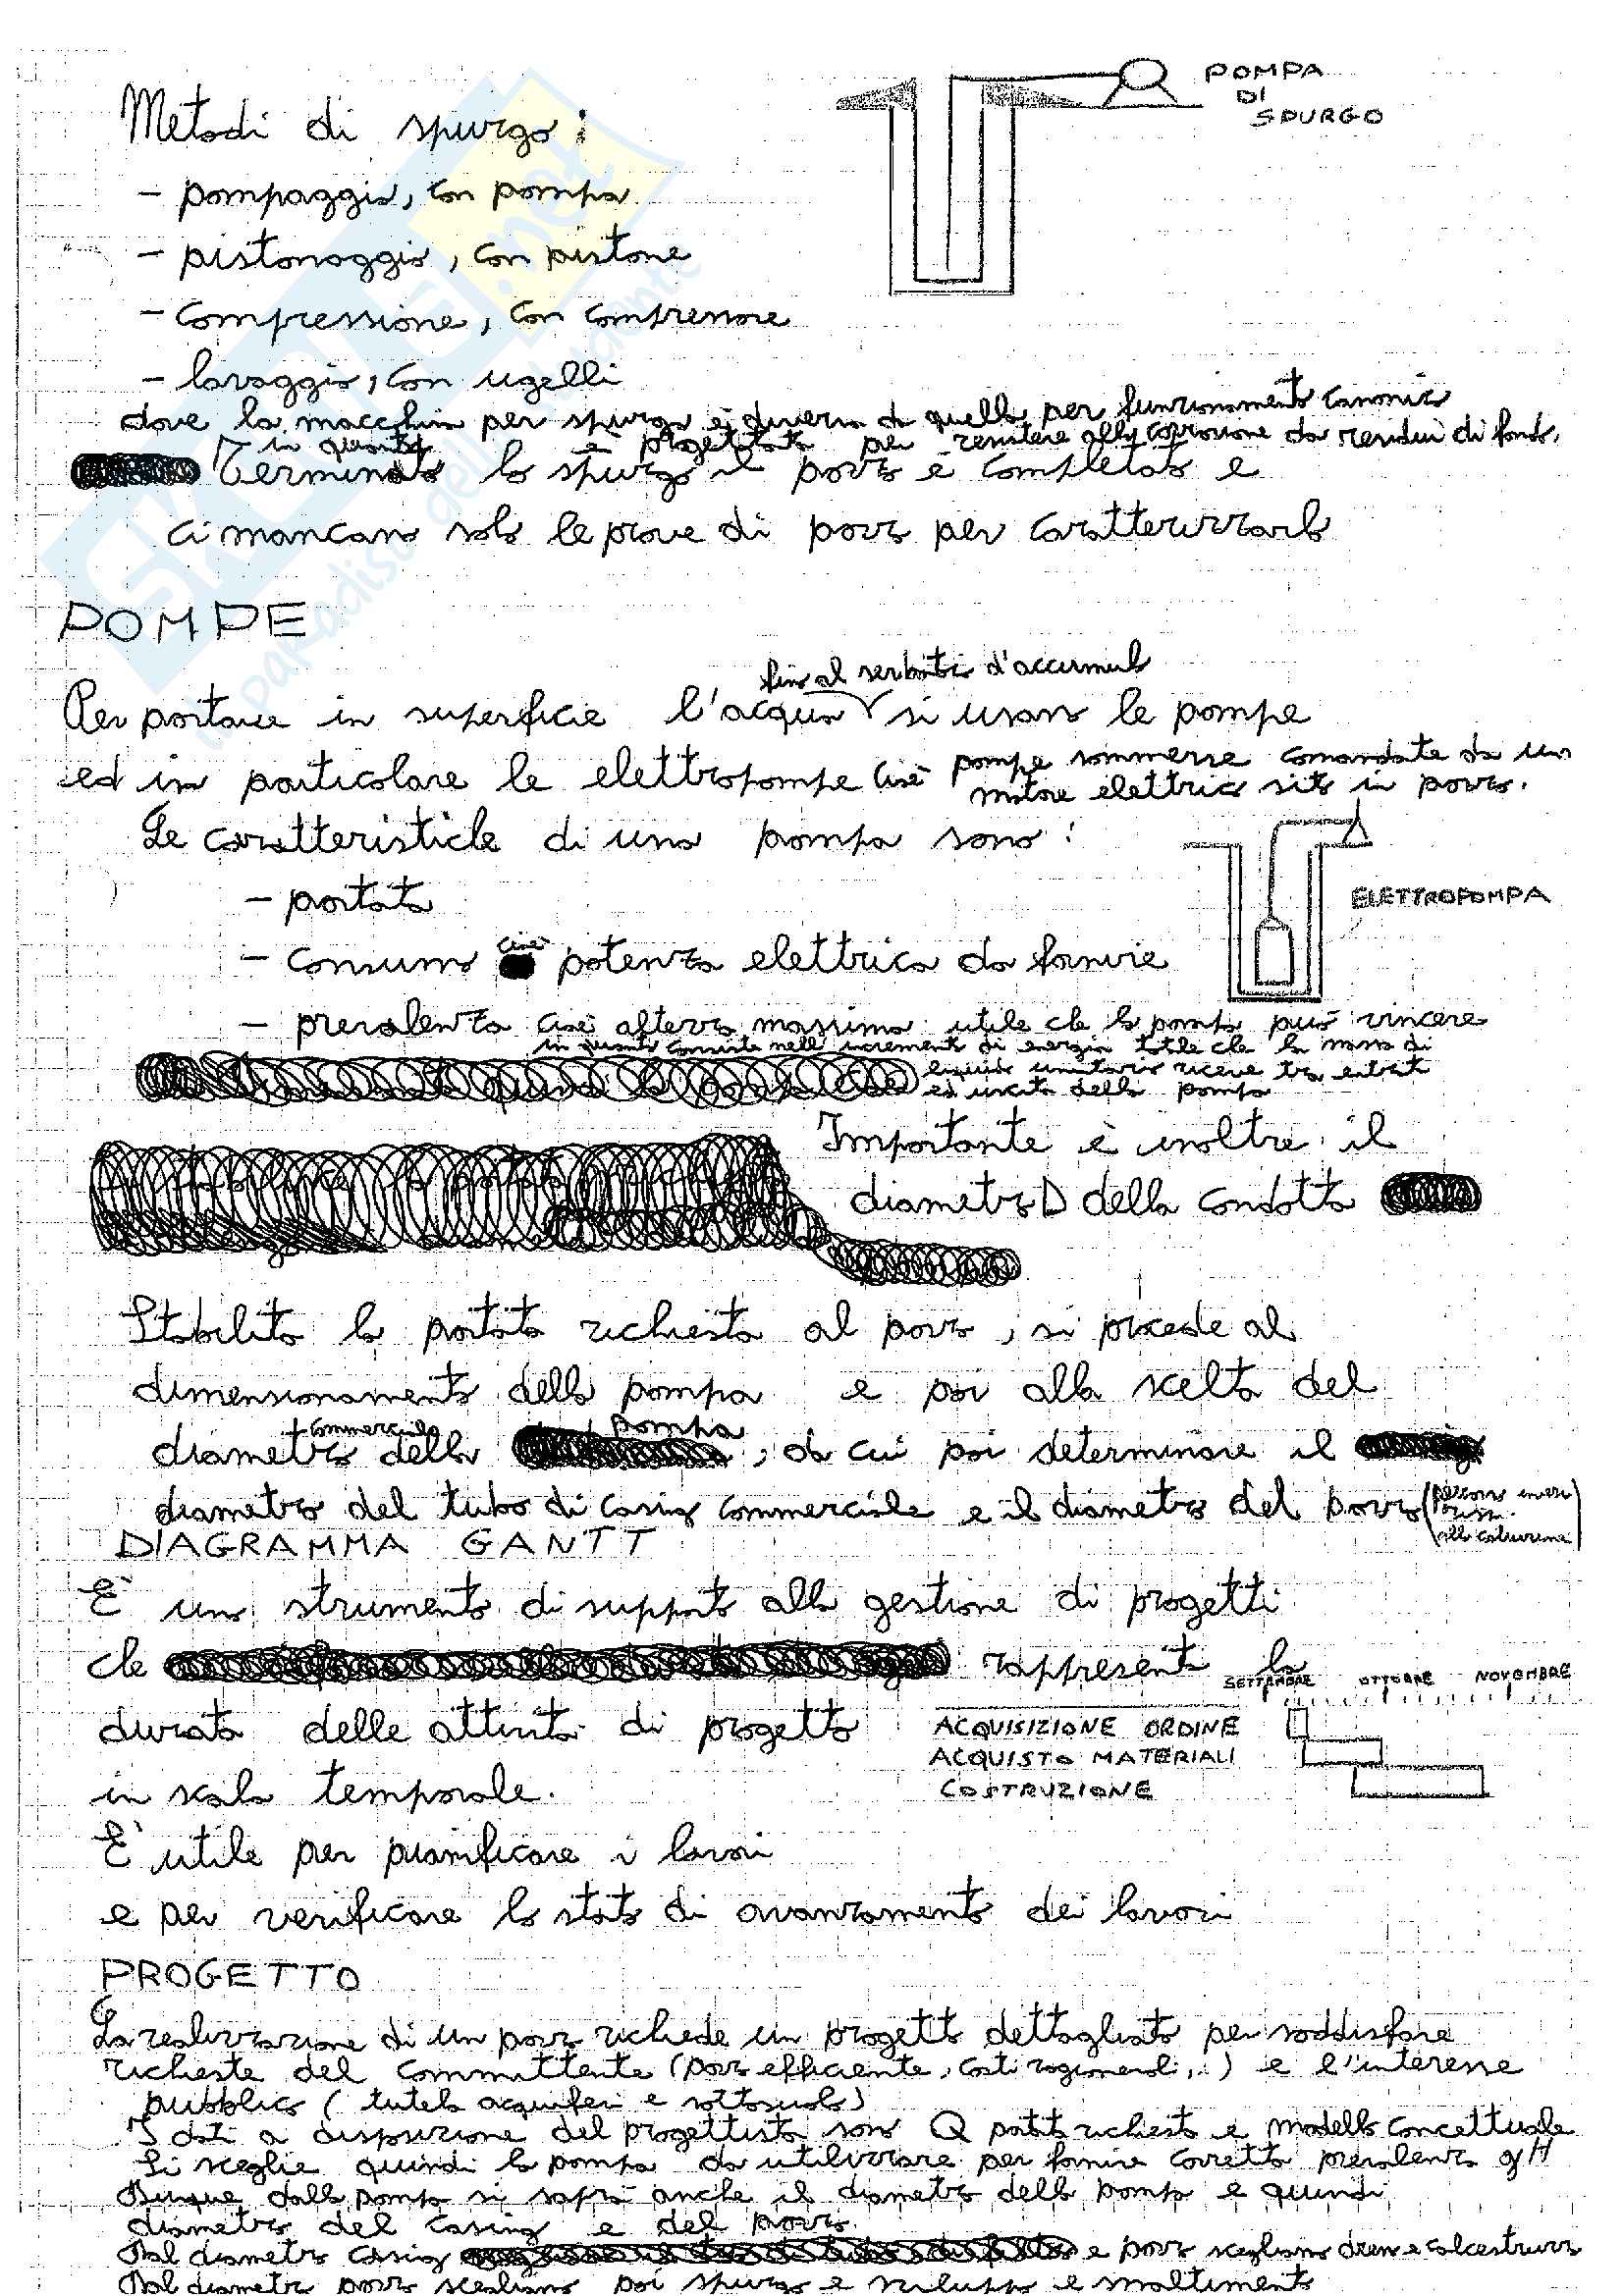 POMPA
DI
SPURGO
Metodi di spurgo:
- pompaggio, con pompa
- pistonaggio, con pistone
- compressione, con compressore
- lavaggio, con ugelli
dove la macchina per spurgo è diversa da quella per funzionamento canonico
in quanto è progettata per resistere alla corrosione da residui di fondo.
Terminato lo spurgo il pozzo è completato e
ci mancano solo le prove di pozzo per caratterizzarlo
POMPE
fino al serbatoio d'accumulo
Per portare in superficie l'acqua si usano le pompe
ed in particolare le elettropompe cioè pompe sommerse comandate da un
motore elettrico sito in pozzo.
Le caratteristiche di una pompa sono:
- portata
ELETTROPOMPA
- consumo cioè potenza elettrica da fornire
- prevalenza cioè altezza massima utile che la pompa può vincere
in quanto consiste nell'incremento di energia totale che la massa di
liquido unitario riceve tra entrata
ed uscita della pompa
Importante è inoltre il
diametro D della condotta
Stabilita la portata richiesta al pozzo, si procede al
dimensionamento della pompa e poi alla scelta del
diametro commerciale della pompa, da cui poi determinare il
diametro del tubo di casing commerciale e il diametro del pozzo (percorso inverso
alla
DIAGRAMMA GANTT
È uno strumento di supporto alla gestione di progetti
che rappresenta la
SETTEMBRE OTTOBRE NOVEMBRE
durata delle attività di progetto
ACQUISIZIONE ORDINE
ACQUISTO MATERIALI
COSTRUZIONE
in scala temporale.
È utile per pianificare i lavori
e per verificare lo stato di avanzamento dei lavori
PROGETTO
La realizzazione di un pozzo richiede un progetto dettagliato per soddisfare
richieste del committente (pozzo efficiente, costi ragionevoli,..) e l'interesse
pubblico (tutela acquiferi e sottosuolo)
I dati a disposizione del progettista sono Q portata richiesta e modello concettuale
Si sceglie quindi la pompa da utilizzare per fornire corretta prevalenza gH
Dunque dalla pompa si saprà anche il diametro della pompa e quindi
diametro del casing e del pozzo.
Dal diametro casing e pozzo scegliamo dreno e calcestruzzo
Dal diametro pozzo scegliamo poi spurgo e sviluppo e smaltimento